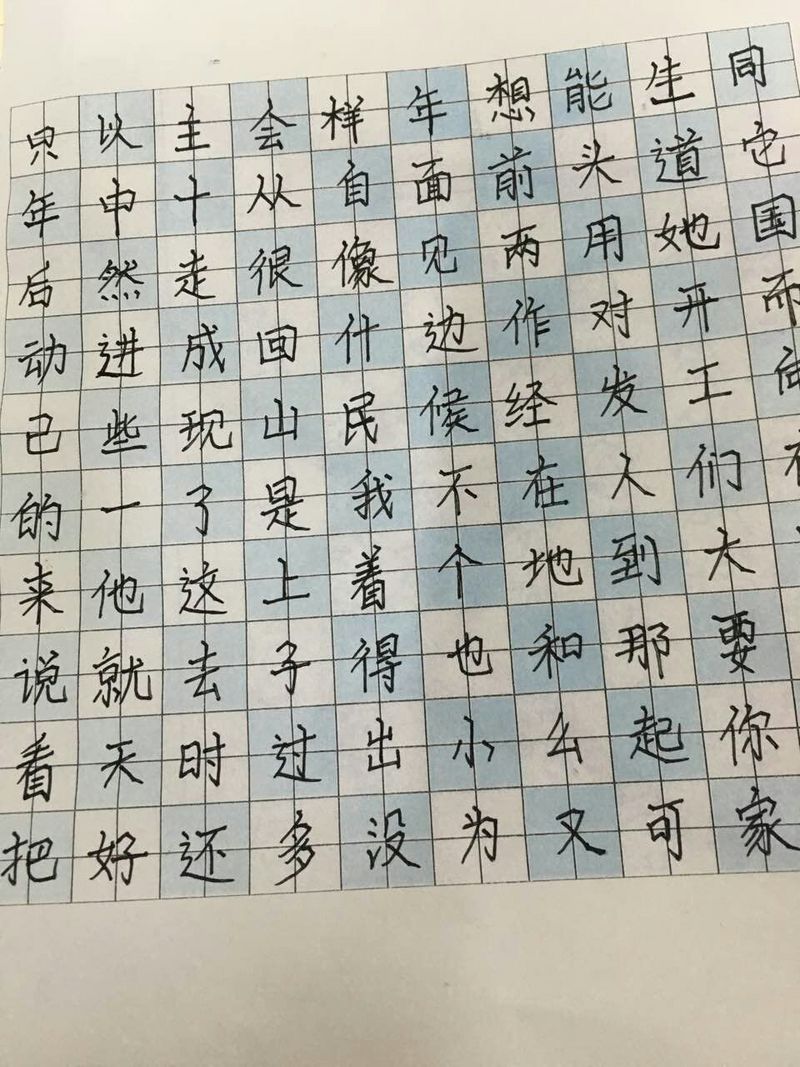 只以主会样年想能生同
年中十从自面前头道它
后然走很像见两用她国
动进成回什边作对开而
己些现山民候经发工向
的一了是我不在人们
来他这上着个地到大
说就去子得也和那要
看天时过出小么起你
把好还多没为又可家